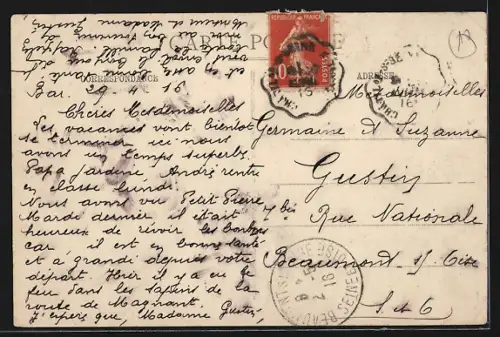 CARTE POSTALE
CORRESPONDANCE
ADRESSE
REPUBLIQUE FRANÇAISE
10
POSTES
Bar. 29 4 16
Chères Mesdemoiselles
Les vacances vont bientôt
se terminer ici nous
avons un temps superbe.
Papa jardine André rentre
en classe lundi.
Nous avons vu Petit Pierre
Mardi dernier il était
heureux de revoir les bonbons
car il est en bonne santé
et a grandi depuis votre
départ. Hier il y a eu le
feu dans les sapins de la
route de Magnant.
J'espère que, Madame Gustin,
est en
santé
toute la famille
Monsieur et Madame Gustin
Mesdemoiselles
Germaine et Suzanne
Gustin
7 bis Rue Nationale
Beaumont s/ Oise
S. et O.
BEAUMONT
SEINE